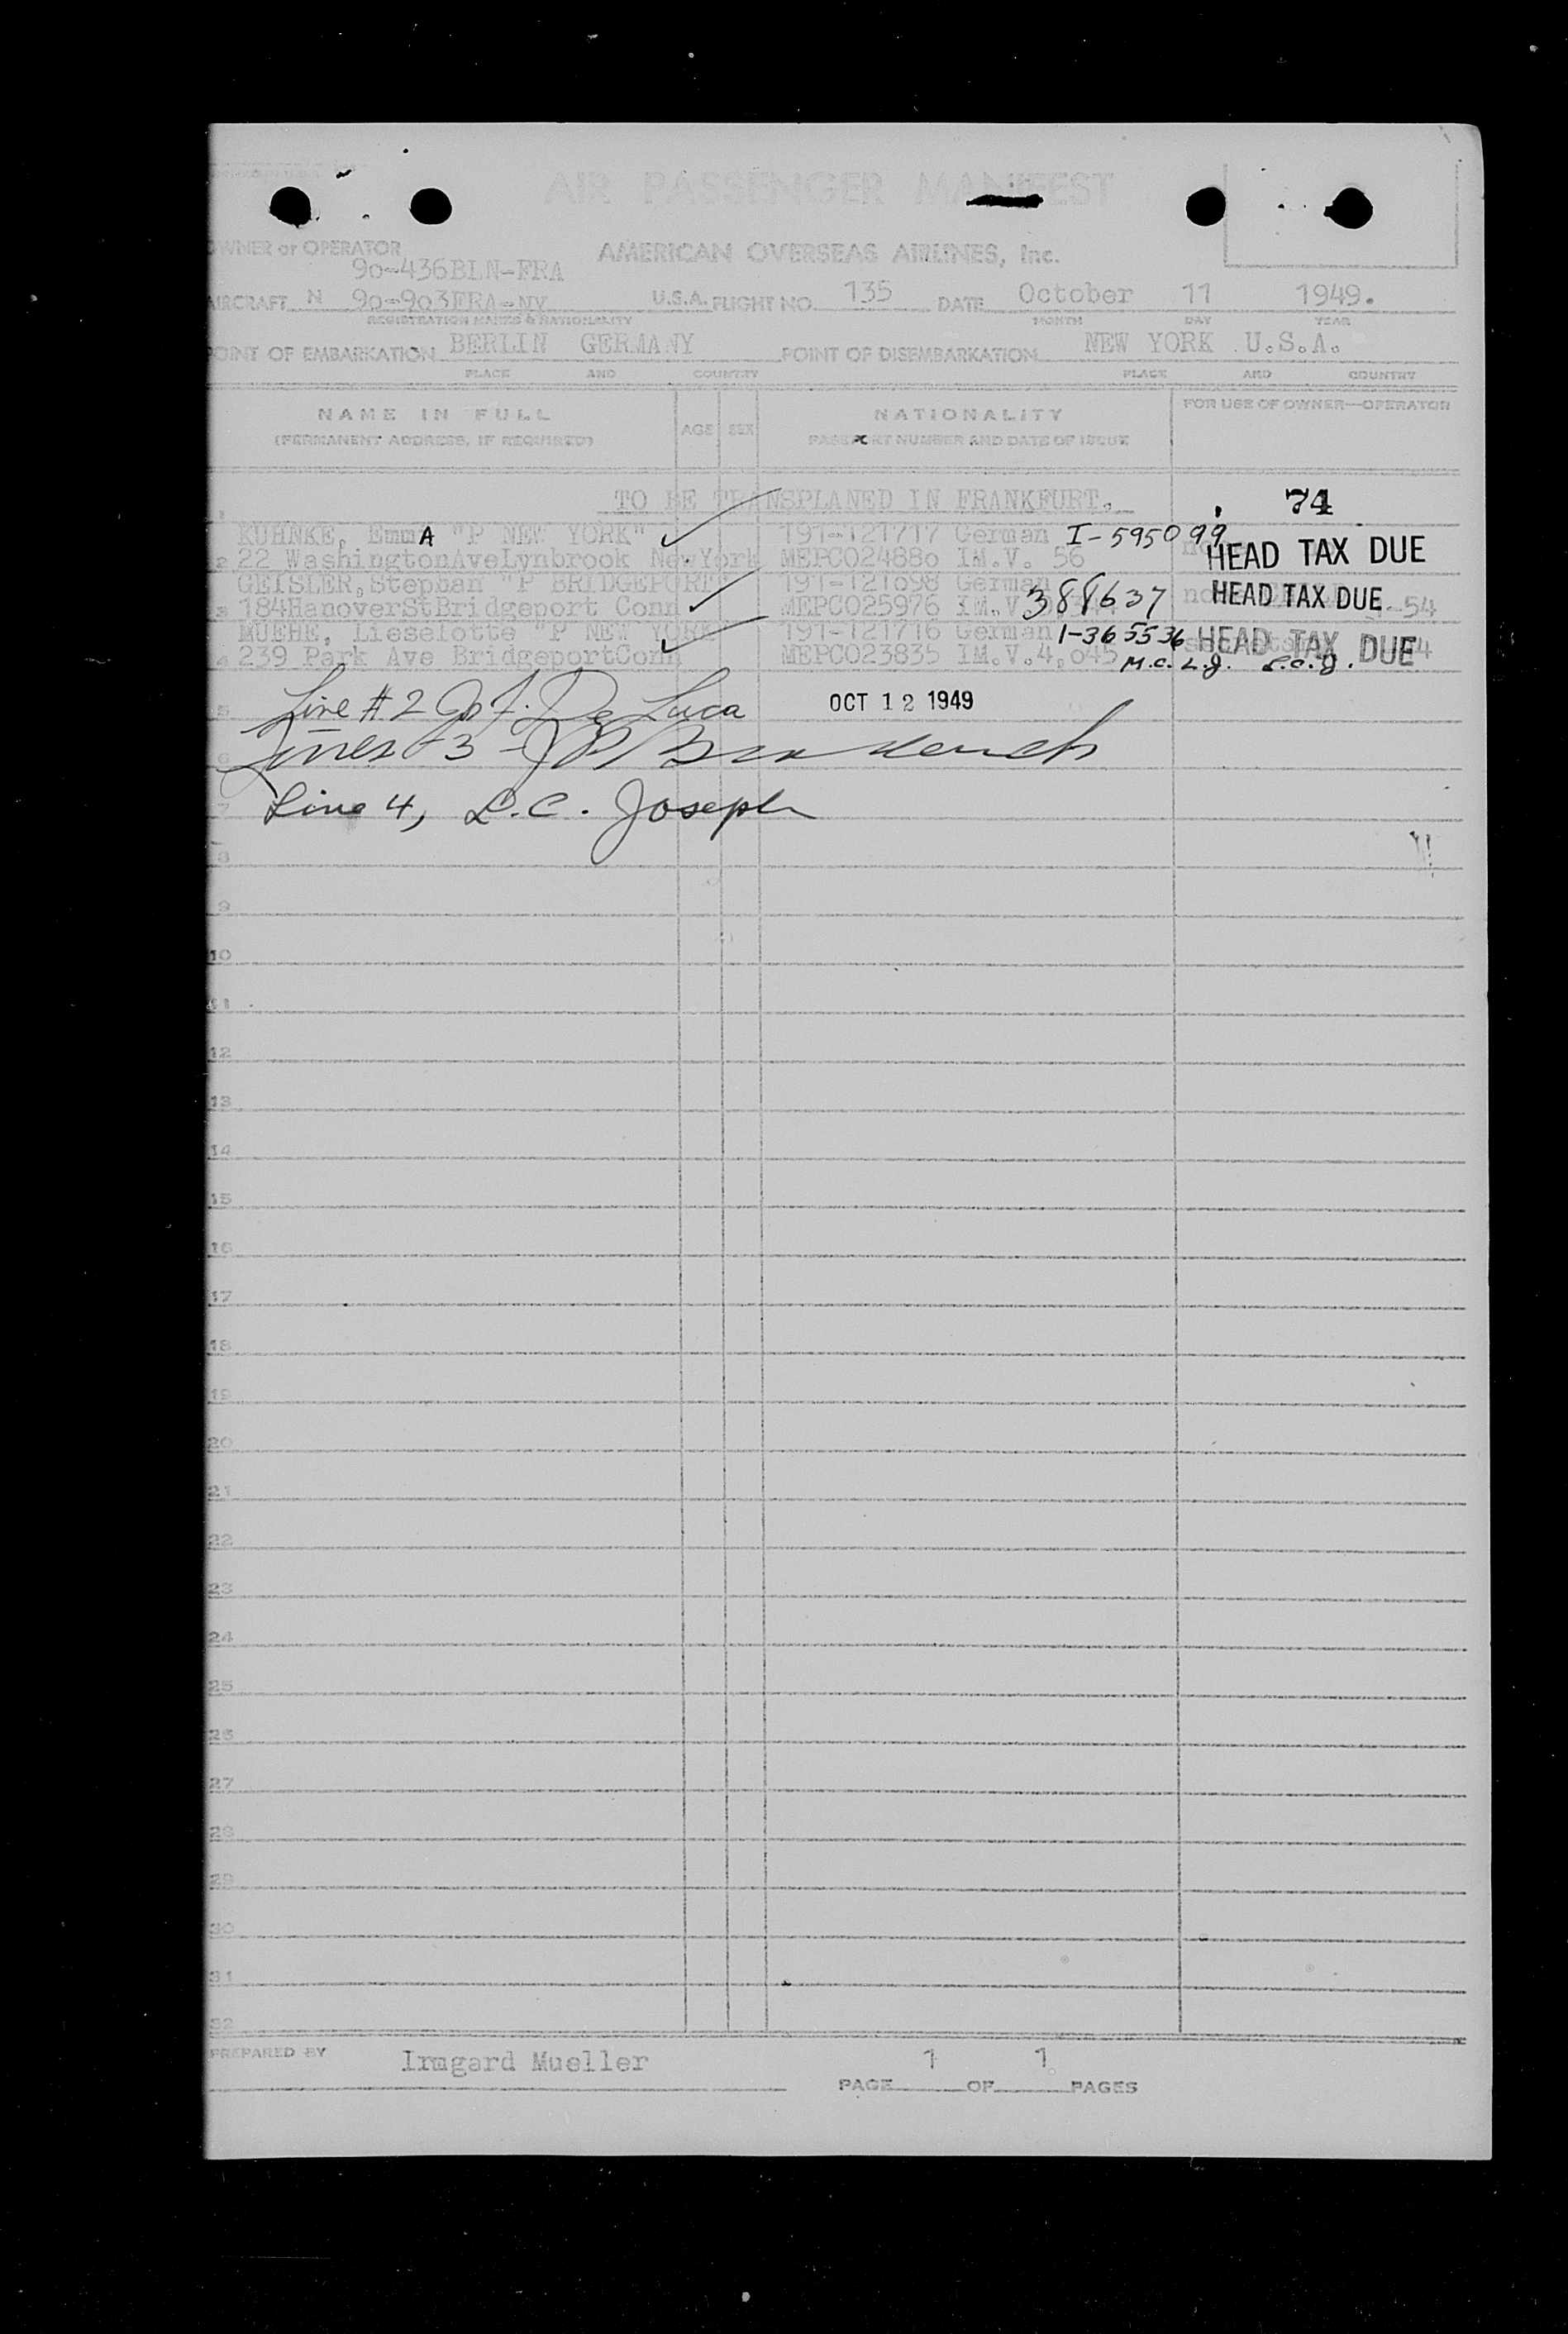 AIR PASSENGER MANIFEST
OWNER or OPERATOR AMERICAN OVERSEAS AIRLINES, Inc.
90-436BLN-FRA
AIRCRAFT N 90-903FRA-NY U.S.A. FLIGHT NO. 135 DATE October 11 1949.
REGISTRATION MARKS & NATIONALITY MONTH DAY YEAR
POINT OF EMBARKATION BERLIN GERMANY POINT OF DISEMBARKATION NEW YORK U.S.A.
PLACE AND COUNTRY PLACE AND COUNTRY
NAME IN FULL AGE SEX NATIONALITY FOR USE OF OWNER—OPERATOR
(PERMANENT ADDRESS, IF REQUIRED) PASSPORT NUMBER AND DATE OF ISSUE
1 TO BE TRANSPLANED IN FRANKFURT. 74
KUHNKE, EmmA "P NEW YORK" 191-121717 German I-595099
2 22 WashingtonAveLynbrook NewYork MEPCO24880 IM.V. 56 HEAD TAX DUE
GEISLER, Stephan "P BRIDGEPORT" 191-121698 German 388637
3 184HanoverStBridgeport Conn MEPCO25976 IM.V. HEAD TAX DUE -54
MUEHE, Lieselotte "P NEW YORK" 191-121716 German 1-365536 HEAD TAX DUE
4 239 Park Ave BridgeportConn MEPCO23835 IM.V.4,045 M.C.L.J. L.C.J.
5 Line #2 Jos F. De Luca OCT 12 1949
6 3
7 Line 4, L.C. Joseph
8
9
10
11
12
13
14
15
16
17
18
19
20
21
22
23
24
25
26
27
28
29
30
31
32
PREPARED BY Irmgard Mueller 1 1
PAGE OF PAGES